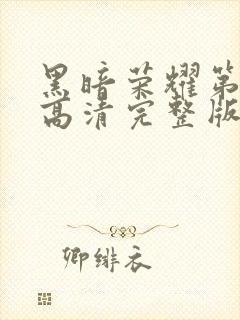 黑暗荣耀第
高清完整版
卿绯衣